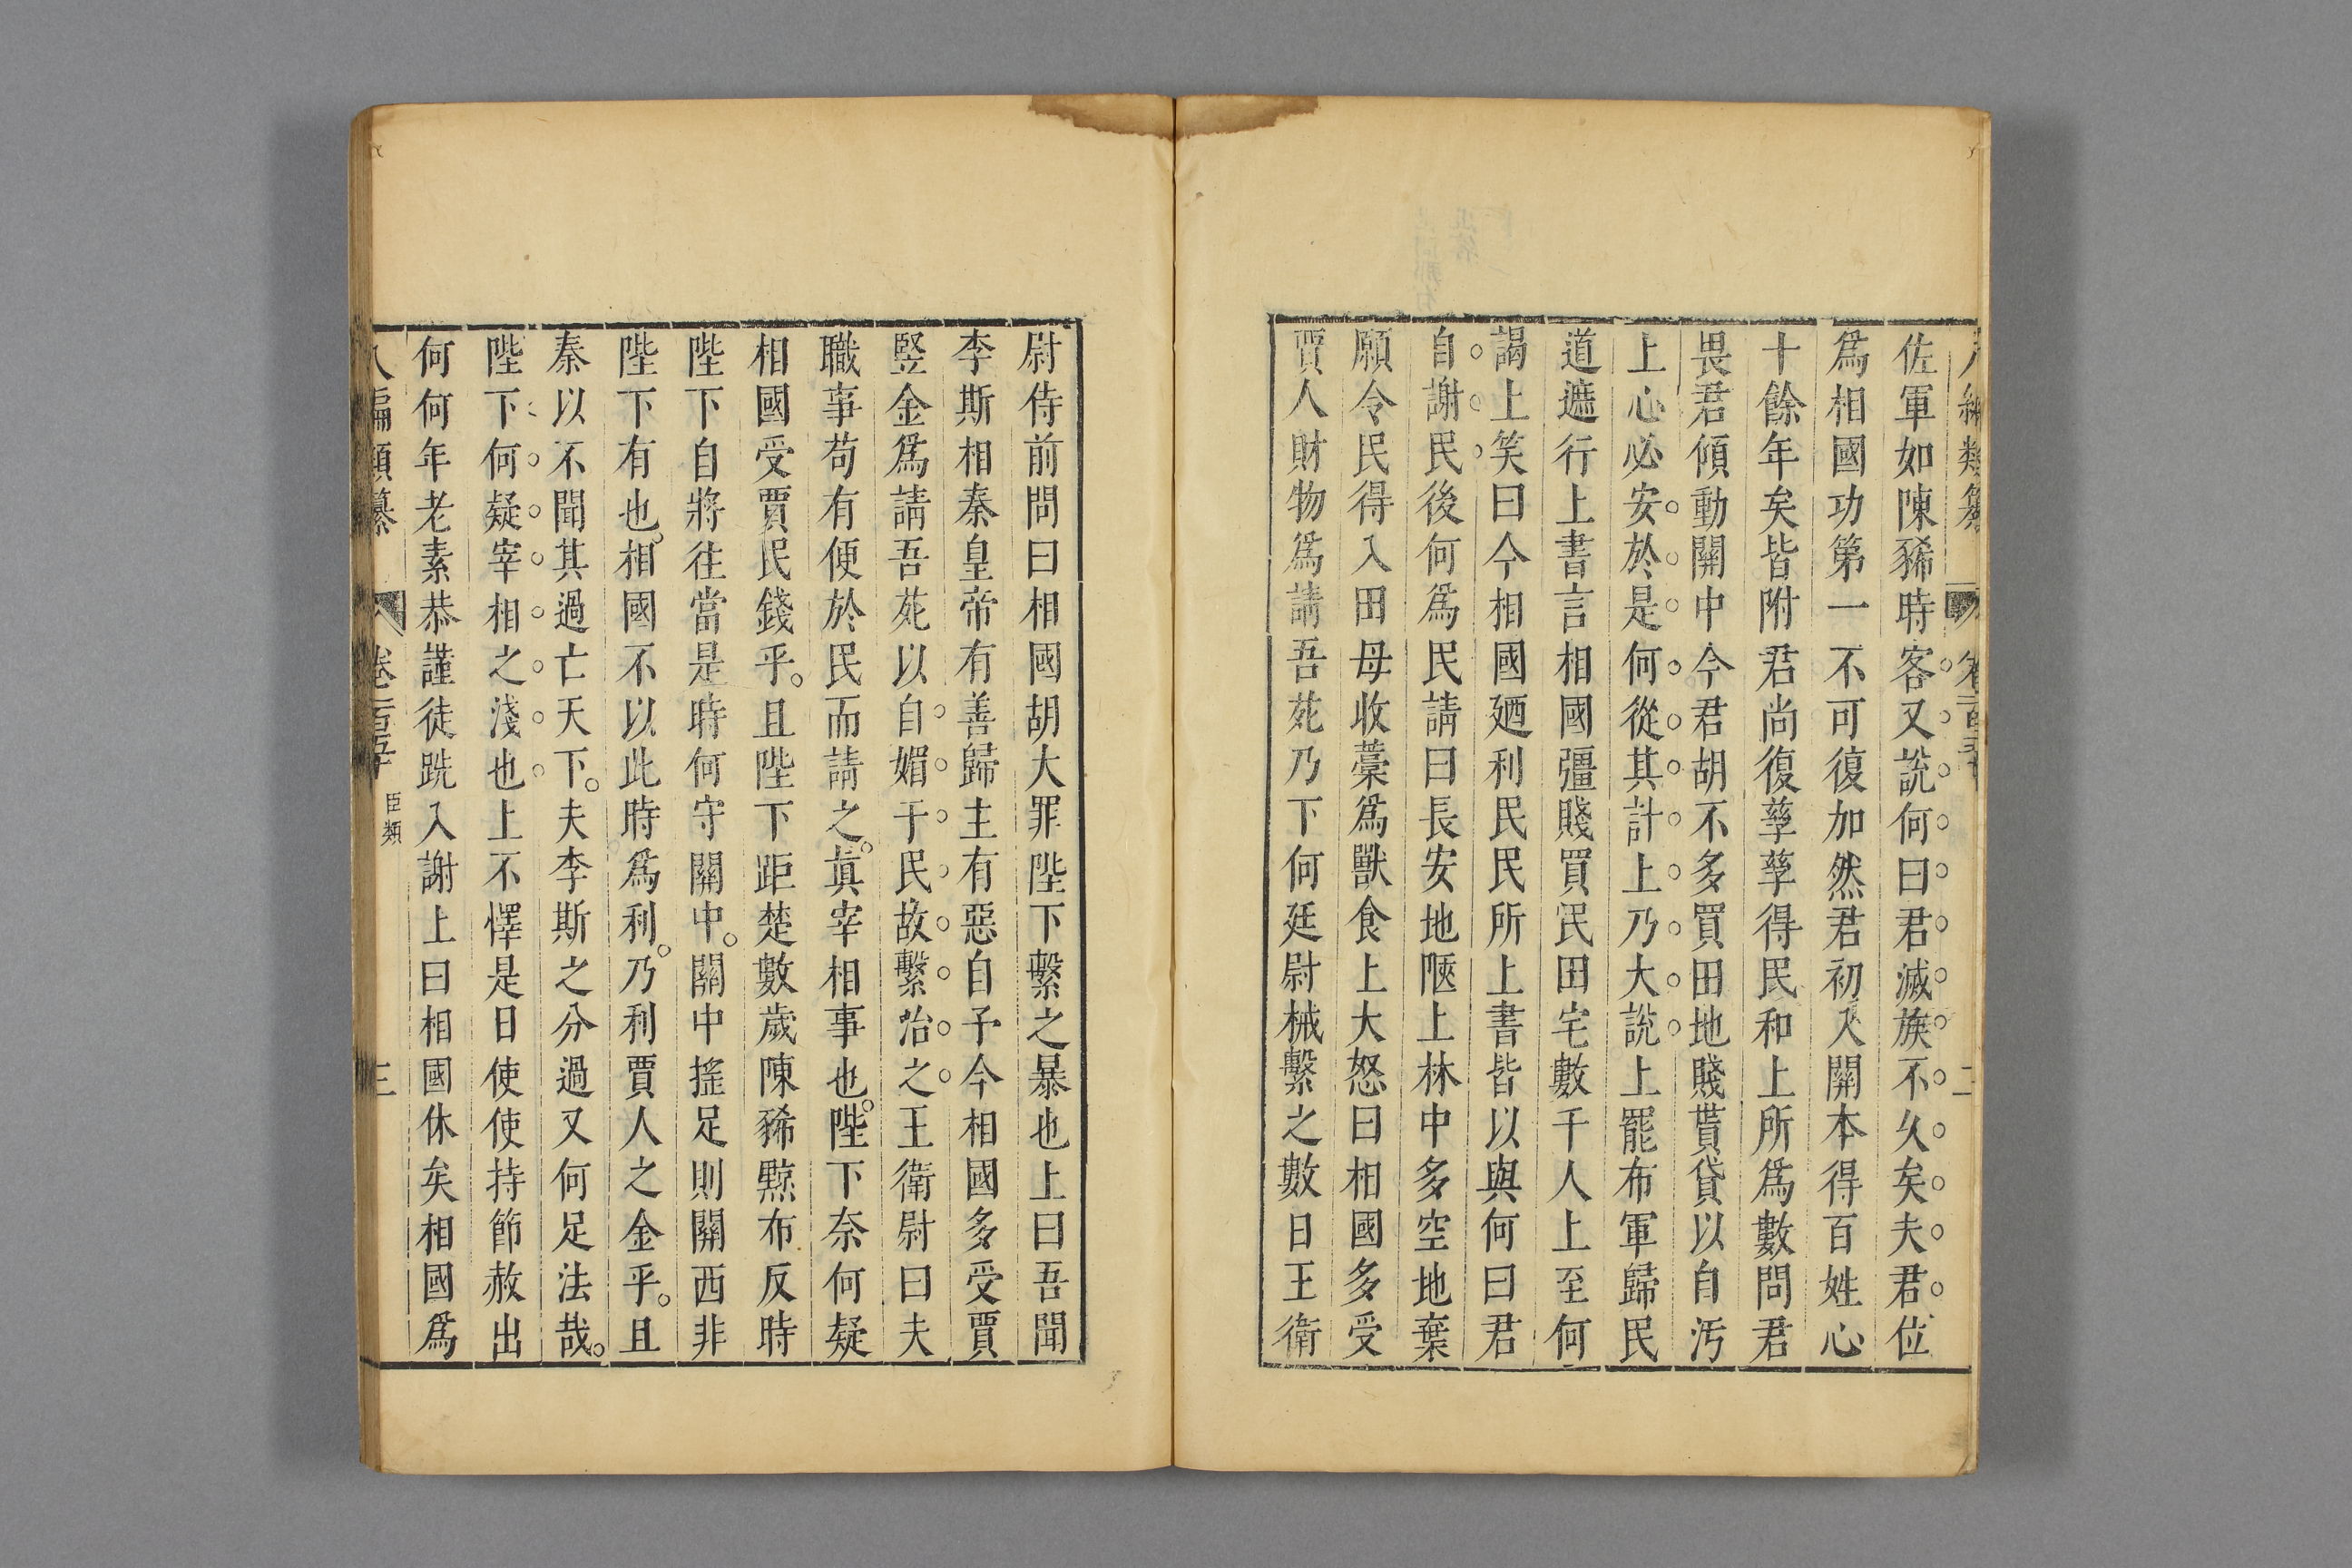 佐軍如陳豨時客又說何曰君滅族不久矣夫君位
爲相國功第一不可復加然君初入關本得百姓心
十餘年矣皆附君尚復孳孳得民和上所爲數問君
畏君傾動關中今君胡不多買田地賤貰貸以自汚
上心必安於是何從其計上乃大說上罷布軍歸民
道遮行上書言相國彊賤買民田宅數千人上至何
謁上笑曰今相國廼利民民所上書皆以與何曰君
自謝民後何爲民請曰長安地陿上林中多空地棄
願令民得入田母收藁爲獸食上大怒曰相國多受
賈人財物爲請吾苑乃下何廷尉械繫之數日王衛
尉侍前問曰相國胡大罪陛下繫之暴也上曰吾聞
李斯相秦皇帝有善歸主有惡自予今相國多受賈
竪金爲請吾苑以自媚于民故繫治之王衛尉曰夫
職事苟有便於民而請之真宰相事也陛下奈何疑
相國受賈民錢乎且陛下距楚數歲陳豨黥布反時
陛下自將往當是時何守關中關中搖足則關西非
陛下有也相國不以此時爲利乃利賈人之金乎且
秦以不聞其過亡天下夫李斯之分過又何足法哉
陛下何疑宰相之淺也上不懌是日使使持節赦出
何何年老素恭謹徒跣入謝上曰相國休矣相國爲
八編類纂 卷二百五十 臣類 三